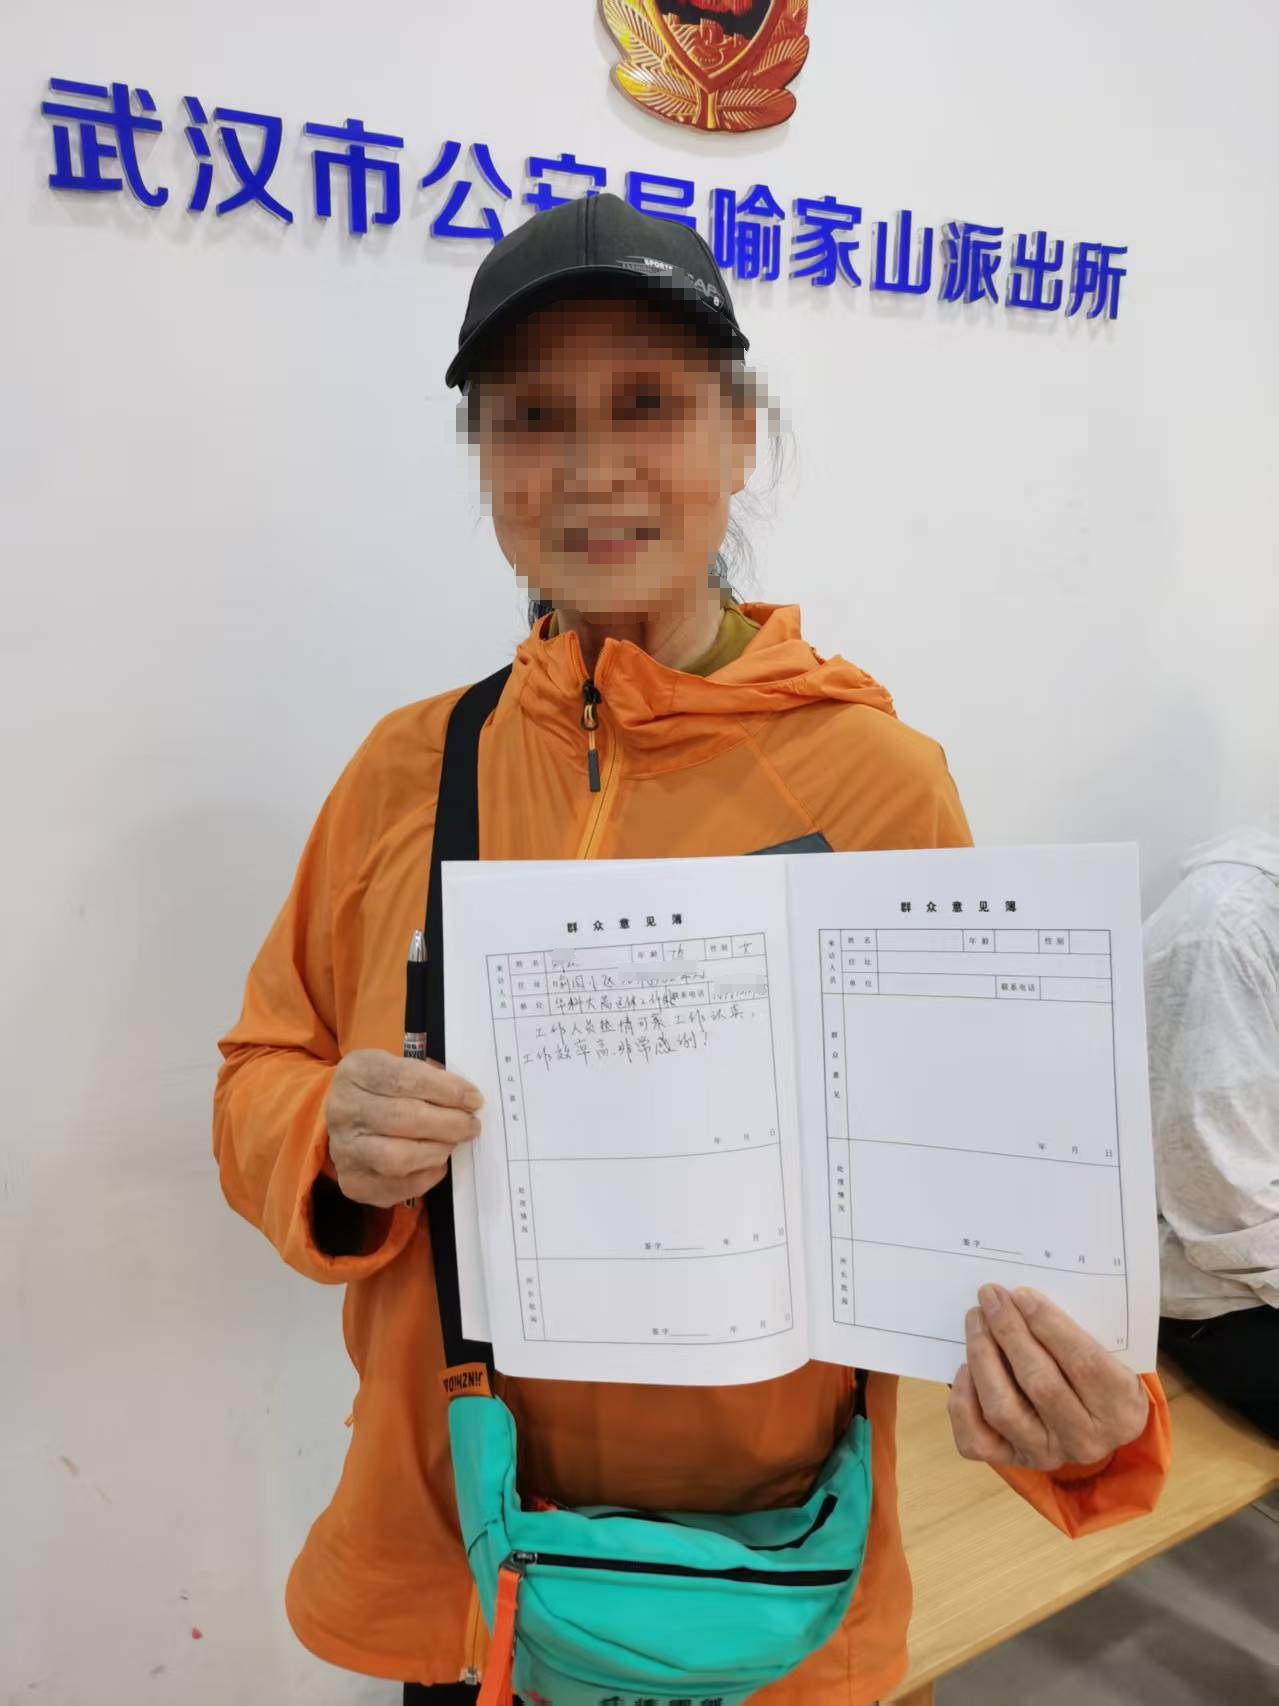 武汉市公安局喻家山派出所
SPORT
CAP
群众意见簿
来访人员
姓名
年龄
性别 女
住址 喻园小区
单位 华科大离退休工作处 联系电话
群众意见
工作人员热情可亲、工作认真,
工作效率高、非常感谢!
年 月 日
处理情况
签字 年 月 日
所长批阅
签字 年 月 日
群众意见簿
来访人员
姓名 年龄 性别
住址
单位 联系电话
群众意见
年 月 日
处理情况
签字 年 月 日
所长批阅
日
JINZHIDA